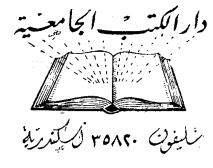 دار الكتب الجامعية
تليفون ٣٥٨٢٠ اسكندرية